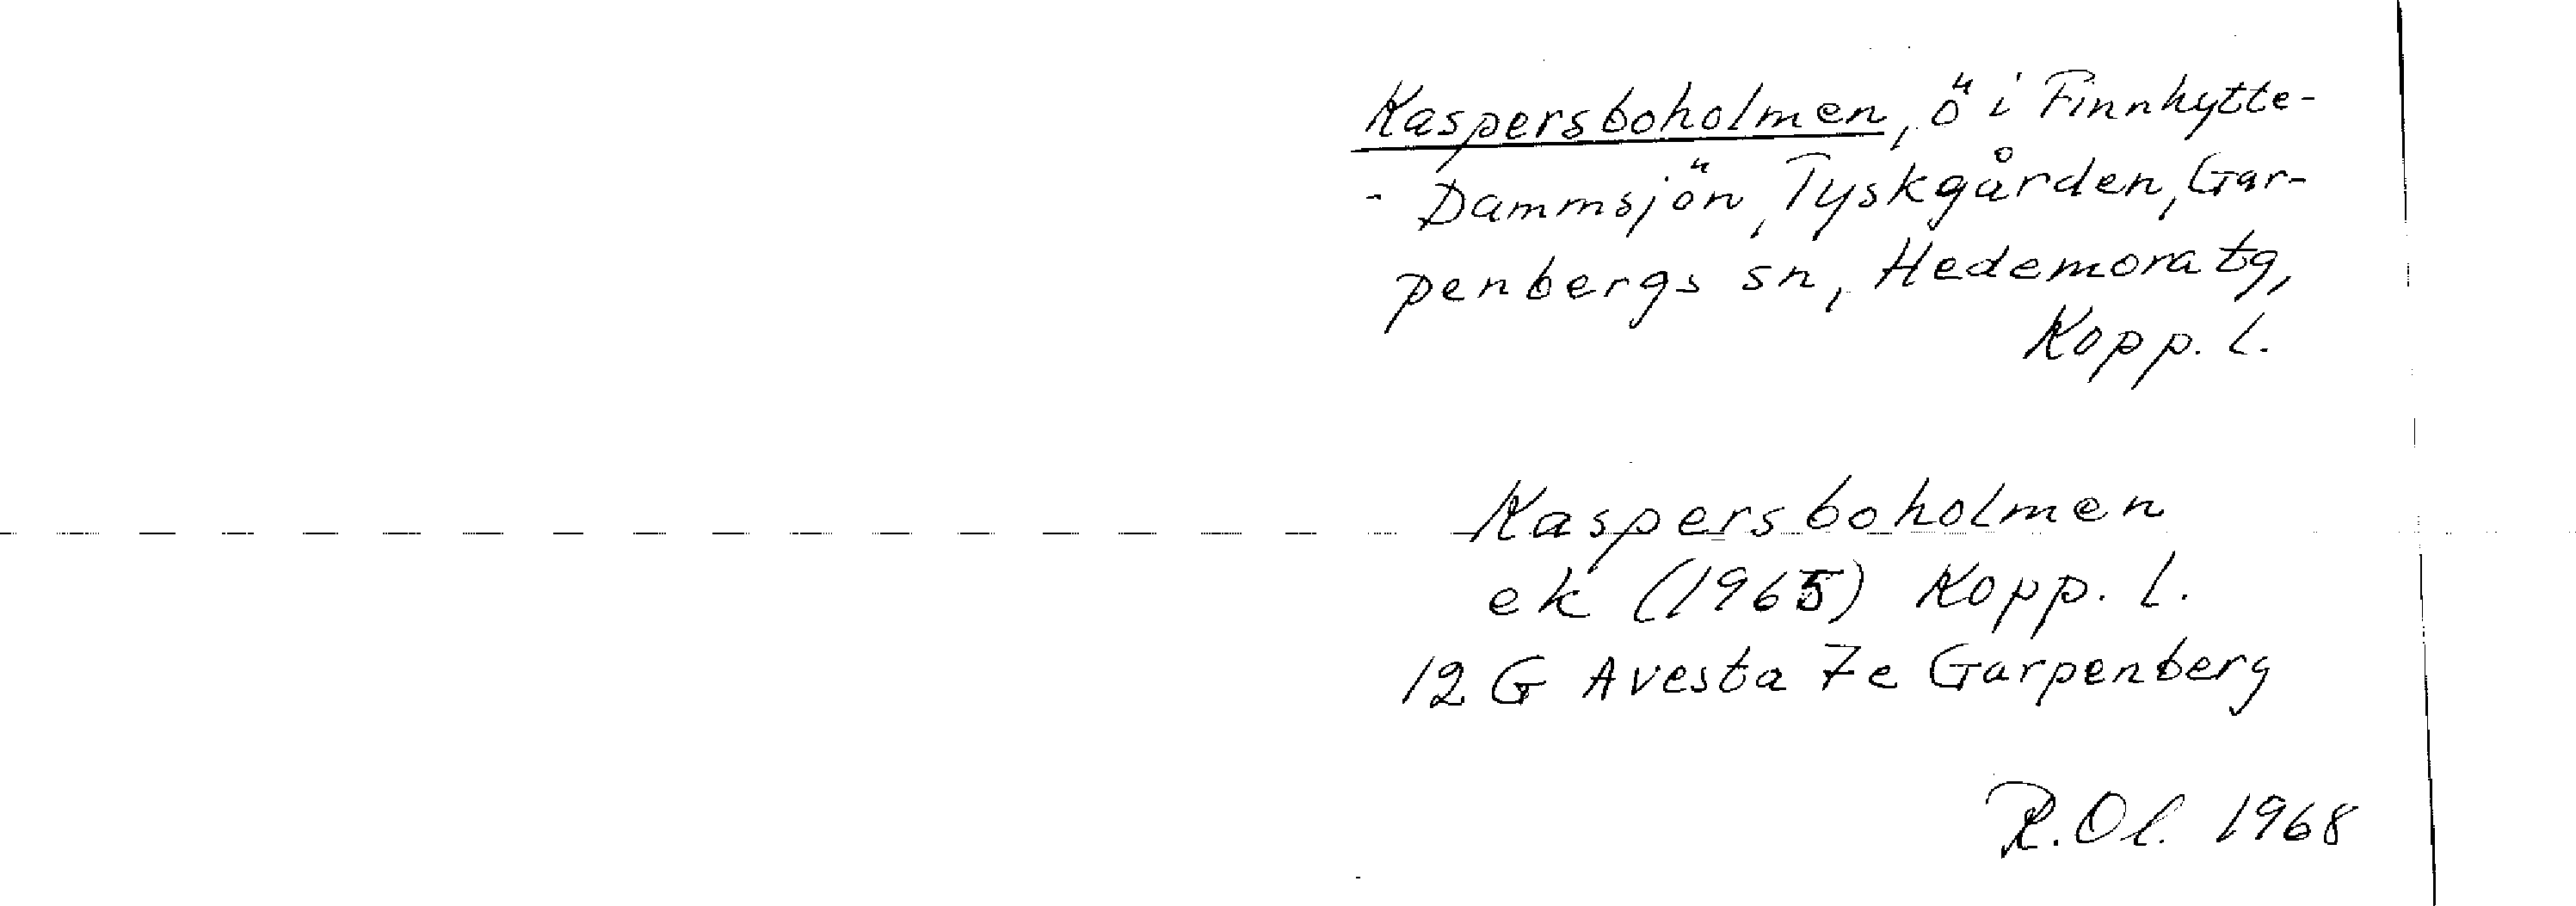 Kaspersboholmen, ö i Finnhytte-
- Dammsjön, Tyskgården, Gar-
penbergs sn, Hedemora tg,
Kopp. l.
Kaspersboholmen
ek (1965) Kopp. l.
12 G Avesta 7e Garpenberg
R. Ol. 1968